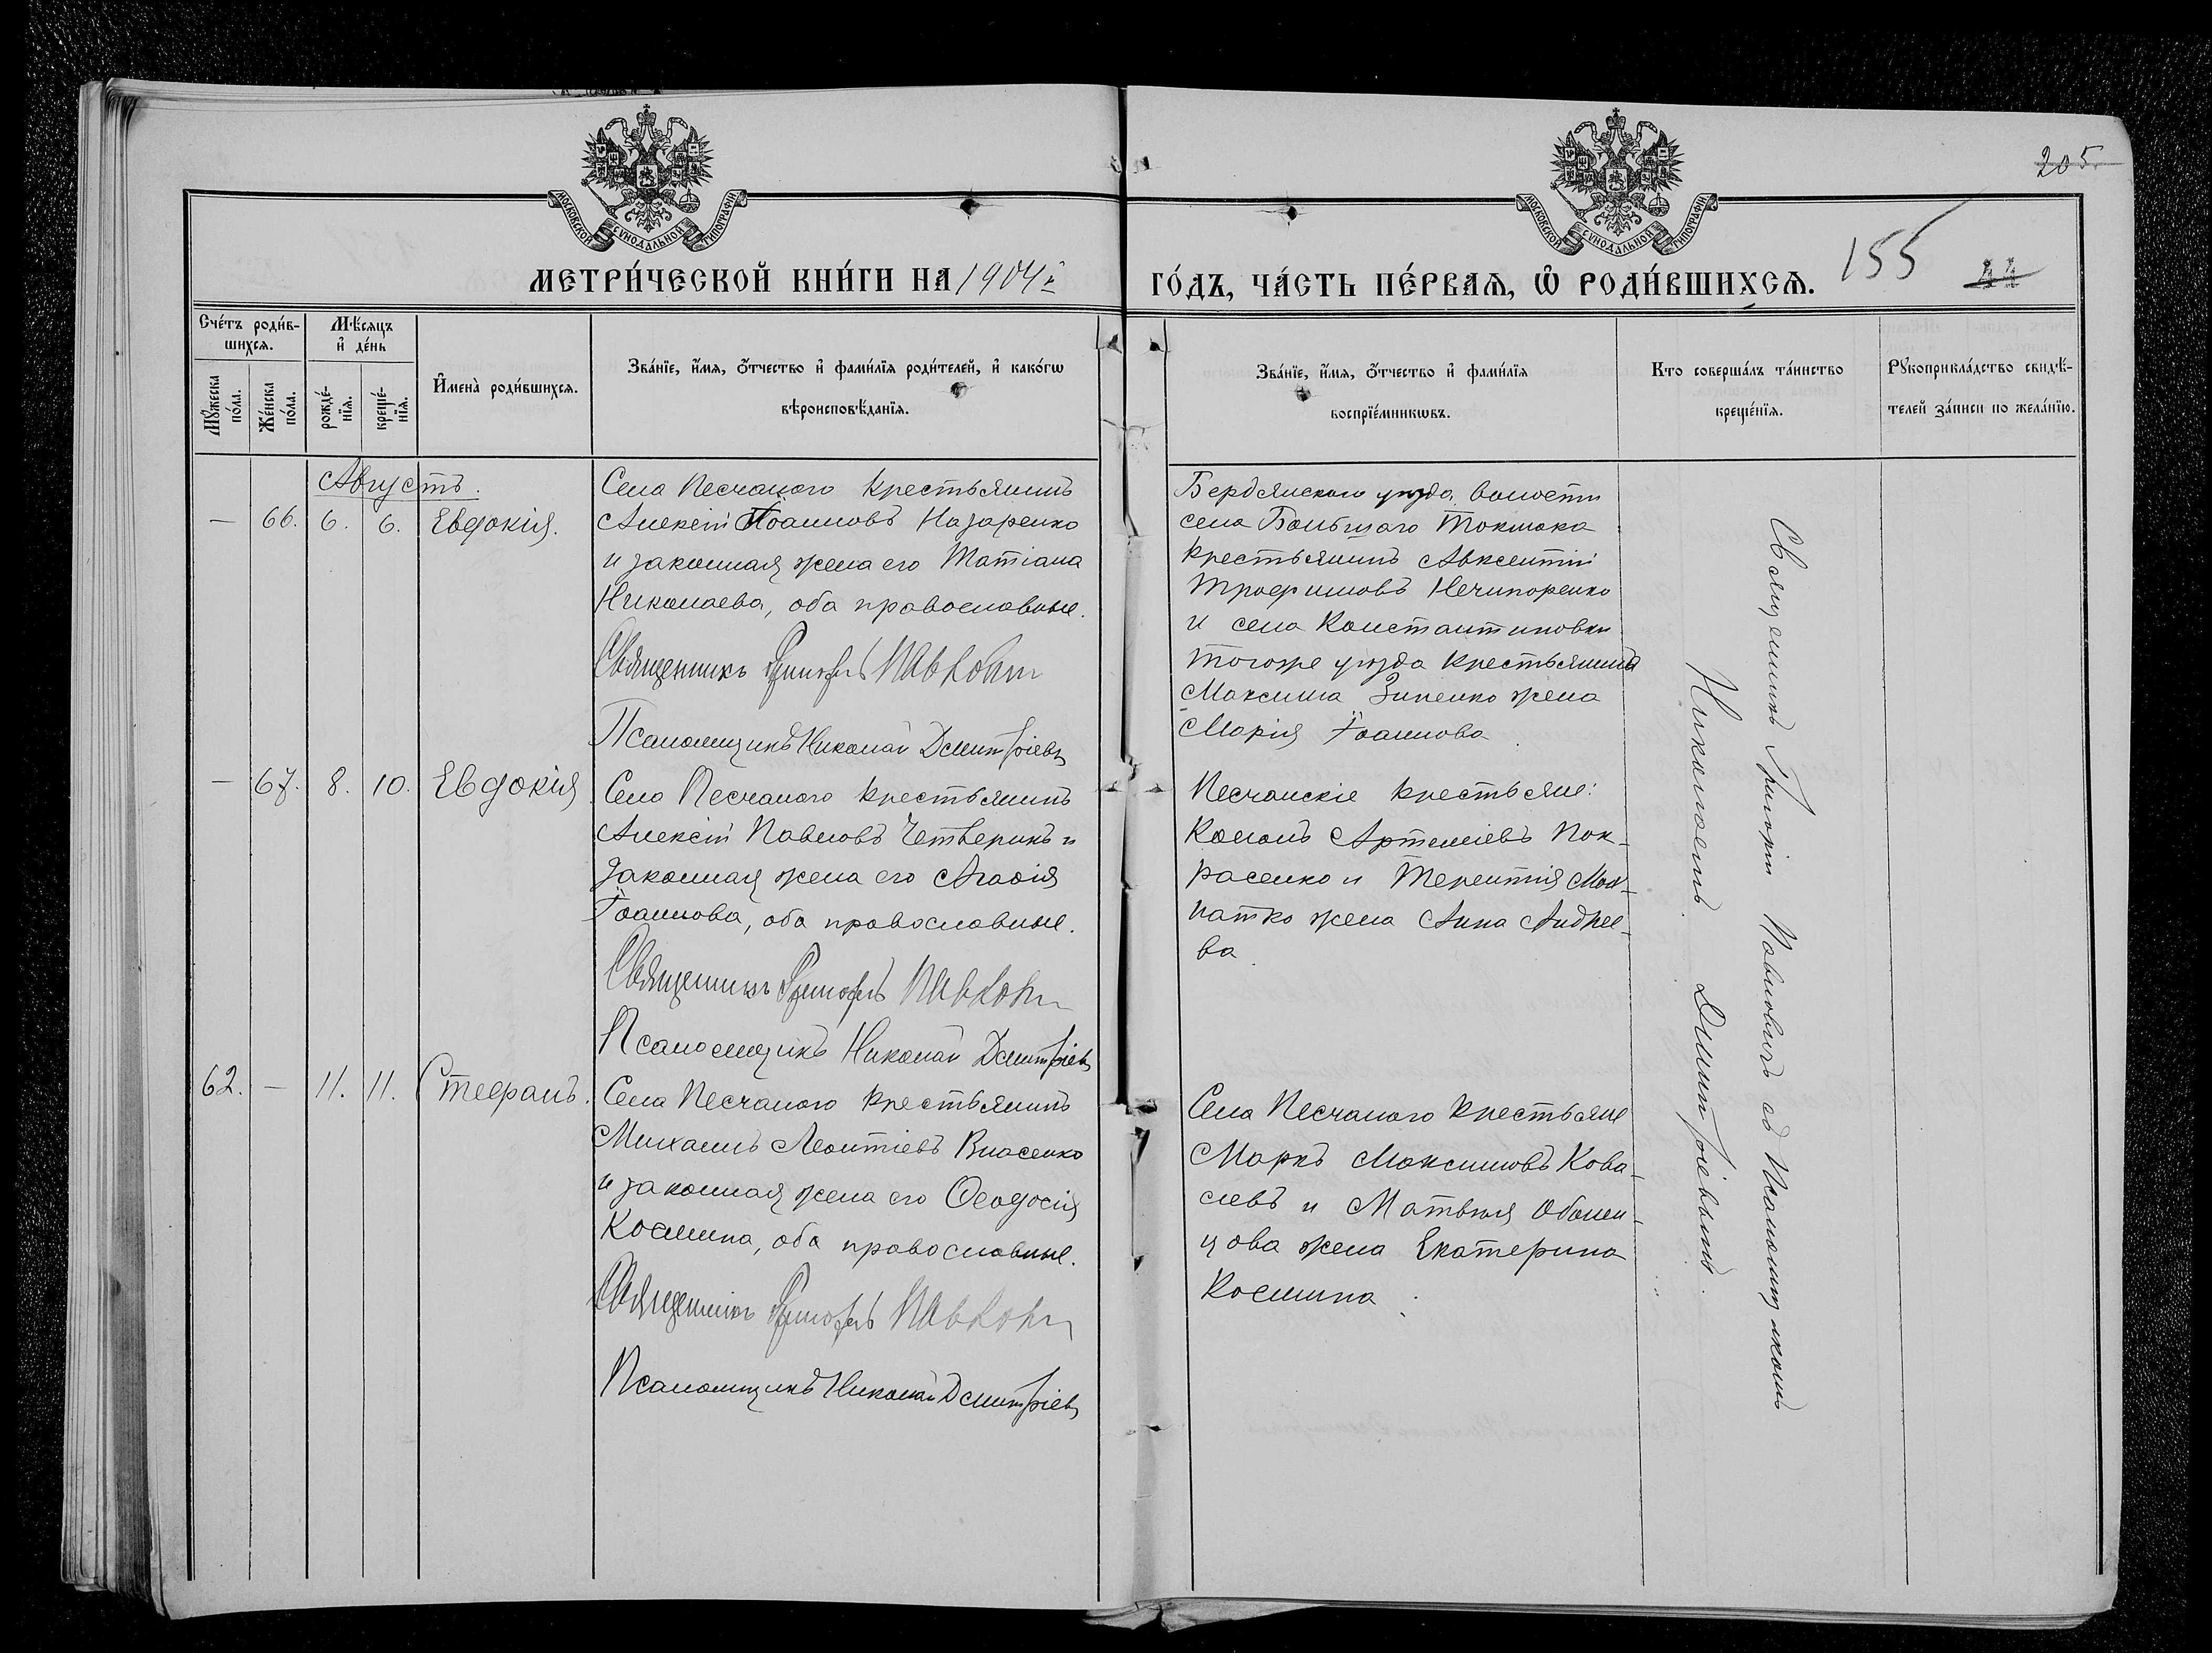 205
МОСКОВСКОЙ СѴНОДАЛЬНОЙ ТИПОГРАФІИ
МОСКОВСКОЙ СѴНОДАЛЬНОЙ ТИПОГРАФІИ
МЕТРИ́ЧЕСКОЙ КНИ́ГИ НА 1904й
ГО́ДЪ, ЧА́СТЬ ПЕ́РВАѦ, Ѽ РОДИ́ВШИХСѦ. 155 44
Сче́тъ роди́в-
шихсѧ.
Мꙋ́жеска по́ла.
Же́нска по́ла.
Мѣ́сѧцъ
и҆ де́нь
рожде́-
нїѧ.
креще́-
нїѧ.
И҆мена̀ роди́вшихсѧ.
Зва́нїе, и҆́мѧ, ѻ҆́тчество и҆ фами́лїѧ роди́телей, и҆ како́гѡ
вѣроисповѣ́данїѧ.
Зва́нїе, и҆́мѧ, ѻ҆́тчество и҆ фами́лїѧ
воспрїе́мникѡвъ.
Кто соверша́лъ та́инство
креще́нїѧ.
Рꙋкоприкла́дство свидѣ́-
телей за́писи по жела́нїю.
Августъ.
— 66. 6. 6. Евдокія.
Села Песчанаго крестьянинъ
Алексій Іоанновъ Назаренко
и законная жена его Татіана
Николаева, оба православные.
Священникъ Григорій Павлович
Псаломщикъ Николай Дмитріевъ
Бердянскаго уѣзда, волости
села Большаго Токмака
крестьянинъ Авксентій
Трофимовъ Нечипоренко
и села Константиновки
тогоже уѣзда крестьянина
Максима Зипенко жена
Марія Іоаннова
— 67. 8. 10. Евдокія
Села Песчанаго крестьянинъ
Алексій Павловъ Четверикъ и
законная жена его Агаѳія
Іоаннова, оба православные.
Священникъ Григорій Павлович
Псаломщикъ Николай Дмитріевъ
Песчанскіе крестьяне:
Кононъ Артеміевъ Пок-
расенко и Терентія Мол-
патко жена Анна Андрее-
ва
62. — 11. 11. Стефанъ.
Села Песчанаго крестьянинъ
Михаилъ Леонтіевъ Власенко
и законная жена его Ѳеодосія
Космина, оба православные.
Священникъ Григорій Павлович
Псаломщикъ Николай Дмитріевъ
Села Песчанаго крестьяне
Маркъ Максимовъ Кова-
левъ и Матвѣя Оболен-
цова жена Екатерина
Космина
Священникъ Григорій Павловичъ съ Псаломщикомъ
Николаемъ Дмитріевымъ.